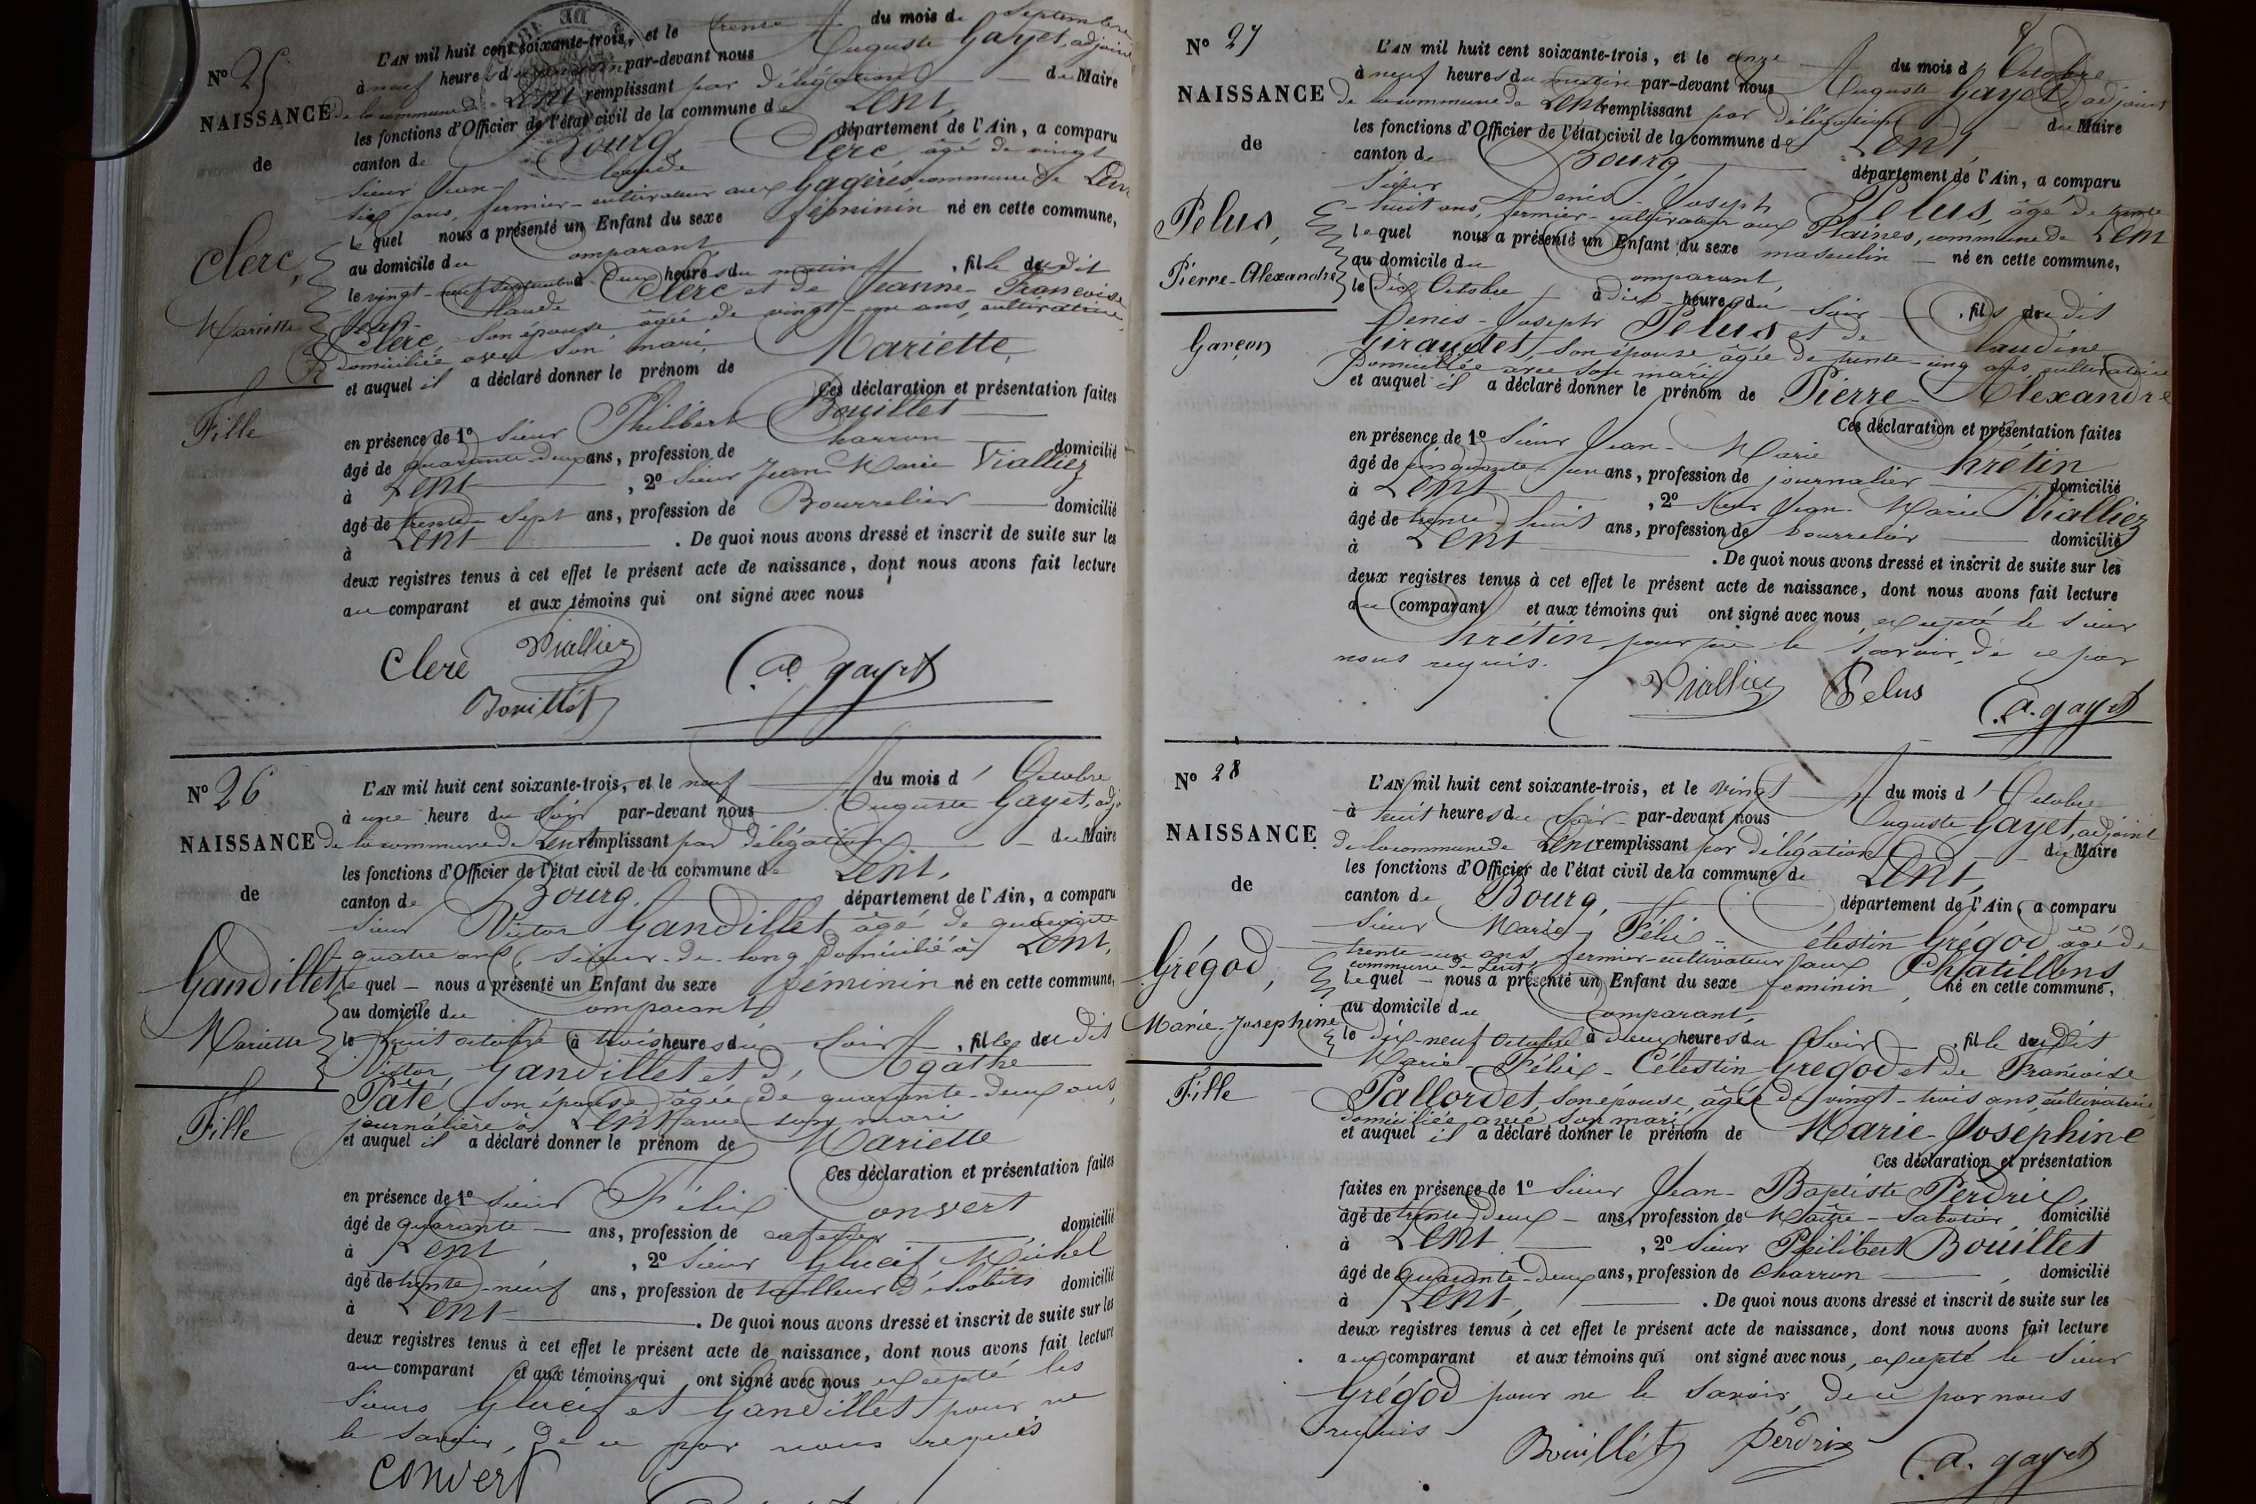 N° 25
NAISSANCE
de
Clerc,
Mariette
Fille
L'AN mil huit cent soixante-trois, et le trente du mois de Septembre
à neuf heures du matin par-devant nous Auguste Gayet, adjoint
de la commune de Lent remplissant par délégation du Maire
les fonctions d'Officier de l'état civil de la commune de Lent,
canton de Bourg, département de l'Ain, a comparu
sieur Jean-Claude Clerc, âgé de vingt
six ans, fermier-cultivateur aux Gagères, commune de Lent
lequel nous a présenté un Enfant du sexe féminin né en cette commune,
au domicile du Comparant
le vingt-neuf septembre à deux heures du matin, fille dudit
Jean-Claude Clerc et de Jeanne-Françoise
Clerc, son épouse âgée de vingt-un ans, cultivatrice,
domiciliée avec son mari,
et auquel il a déclaré donner le prénom de Mariette,
Ces déclaration et présentation faites
en présence de 1° Sieur Philibert Bouillet
âgé de quarante-deux ans, profession de Charron domicilié
à Lent, 2° Sieur Jean-Marie Viallier
âgé de trente-sept ans, profession de Bourrelier domicilié
à Lent. De quoi nous avons dressé et inscrit de suite sur les
deux registres tenus à cet effet le présent acte de naissance, dont nous avons fait lecture
au comparant et aux témoins qui ont signé avec nous
Clerc Viallier
Bouillet a. gayet
N° 26
NAISSANCE
de
Gandillet
Mariette
Fille
L'AN mil huit cent soixante-trois, et le neuf du mois d'Octobre
à une heure du Soir par-devant nous Auguste Gayet, adj
de la commune de Lent remplissant par délégation du Maire
les fonctions d'Officier de l'état civil de la commune de Lent,
canton de Bourg, département de l'Ain, a comparu
Sieur Victor Gandillet, âgé de quarante
-quatre ans, Sieur-de-long domicilié à Lent,
lequel nous a présenté un Enfant du sexe féminin né en cette commune,
au domicile du Comparant
le huit octobre à trois heures du Soir, fille dudit
Victor Gandillet et d'Agathe
Pâté, son épouse, âgée de quarante-deux ans,
journalière à Lent avec son mari
et auquel il a déclaré donner le prénom de Mariette
Ces déclaration et présentation faites
en présence de 1° Sieur Félix Convert
âgé de quarante ans, profession de domicilié
à Lent, 2° Sieur Michel
âgé de trente-neuf ans, profession de tailleur d'habits domicilié
à Lent. De quoi nous avons dressé et inscrit de suite sur les
deux registres tenus à cet effet le présent acte de naissance, dont nous avons fait lecture
au comparant et aux témoins qui ont signé avec nous excepté les
Sieurs et Gandillet pour ne
le savoir, de ce par nous requis
Convert
N° 27
NAISSANCE
de
Pelus,
Pierre-Alexandre
Garçon
L'AN mil huit cent soixante-trois, et le onze du mois d'Octobre
à neuf heures du matin par-devant nous Auguste Gayet, adjoint
de la commune de Lent remplissant par délégation du Maire
les fonctions d'Officier de l'état civil de la commune de Lent,
canton de Bourg, département de l'Ain, a comparu
Sieur Denis-Joseph Pelus, âgé de trente
-huit ans, fermier-cultivateur aux Plaines, commune de Lent
lequel nous a présenté un Enfant du sexe masculin né en cette commune,
au domicile du Comparant,
le dix Octobre à dix heures du Soir, fils dudit
Denis-Joseph Pelus et de Claudine
Giraudet, son épouse âgée de trente-cinq ans, cultivatrice
domiciliée avec son mari,
et auquel il a déclaré donner le prénom de Pierre-Alexandre
Ces déclaration et présentation faites
en présence de 1° Sieur Jean-Marie Chrétin
âgé de cinquante-un ans, profession de journalier domicilié
à Lent, 2° Sieur Jean-Marie Viallier
âgé de trente-huit ans, profession de bourrelier domicilié
à Lent. De quoi nous avons dressé et inscrit de suite sur les
deux registres tenus à cet effet le présent acte de naissance, dont nous avons fait lecture
au comparant et aux témoins qui ont signé avec nous, excepté le Sieur
Chrétin, pour ne le Savoir, de ce par
nous requis.
Viallier Pelus
a. gayet
N° 28
NAISSANCE
de
Grégod,
Marie-Josephine
Fille
L'AN mil huit cent soixante-trois, et le vingt du mois d'Octobre
à huit heures du Soir par-devant nous Auguste Gayet, adjoint
de la commune de Lent remplissant par délégation du Maire
les fonctions d'Officier de l'état civil de la commune de Lent,
canton de Bourg, département de l'Ain, a comparu
Sieur Marie-Félix-Célestin Grégod, âgé de
trente-un ans, fermier-cultivateur aux Chatillons
commune de Lent
lequel nous a présenté un Enfant du sexe feminin, né en cette commune,
au domicile du Comparant,
le dix-neuf Octobre à deux heures du Soir, fille dudit
Marie-Félix-Célestin Grégod et de Françoise
Pallordet, son épouse, âgée de vingt-trois ans, cultivatrice
domiciliée avec son mari,
et auquel il a déclaré donner le prénom de Marie-Josephine
Ces déclaration et présentation
faites en présence de 1° Sieur Jean-Baptiste Perdrix,
âgé de trente-deux ans, profession de Maître-Sabotier, domicilié
à Lent, 2° Sieur Philibert Bouillet
âgé de quarante-deux ans, profession de Charron, domicilié
à Lent,. De quoi nous avons dressé et inscrit de suite sur les
deux registres tenus à cet effet le présent acte de naissance, dont nous avons fait lecture
au comparant et aux témoins qui ont signé avec nous, excepté le Sieur
Grégod pour ne le Savoir, de ce par nous
requis
Bouillet Perdrix
a. gayet